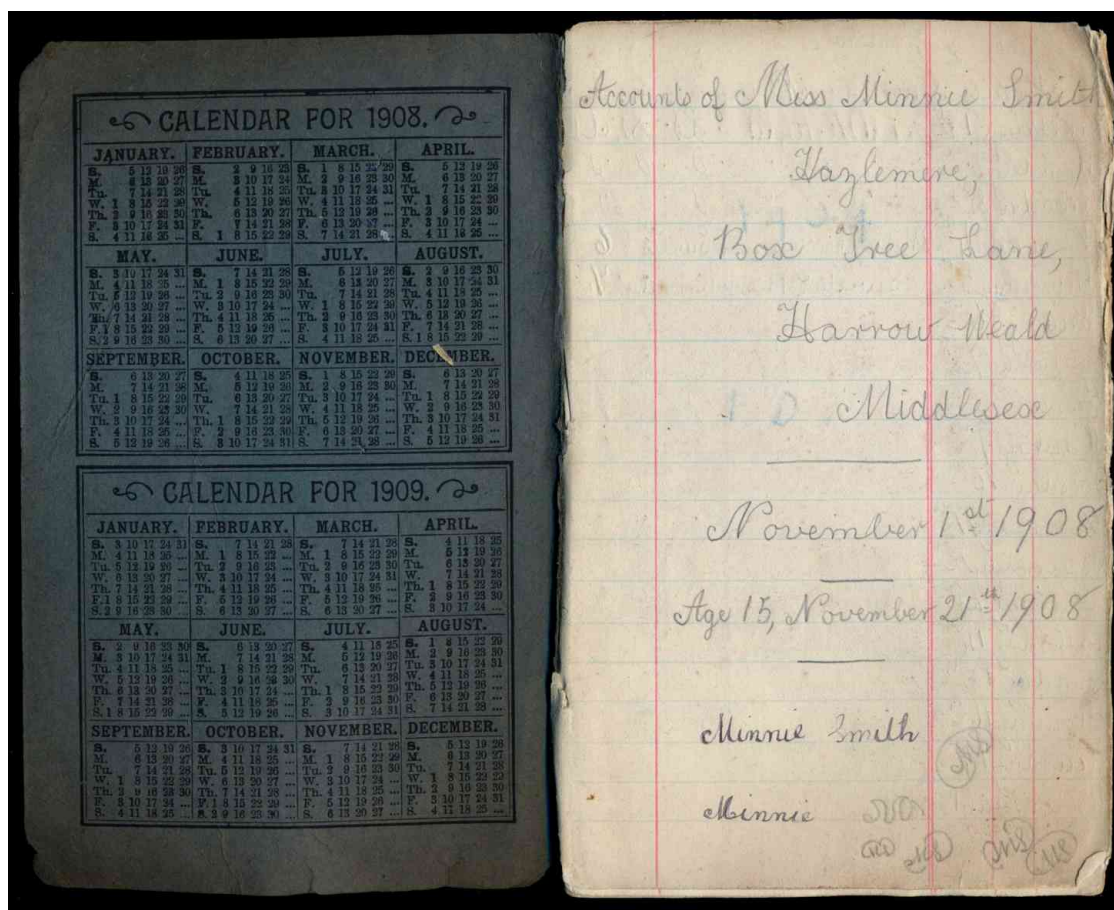 CALENDAR FOR 1908.
JANUARY.
S. 5 12 19 26
M. 6 13 20 27
Tu. 7 14 21 28
W. 1 8 15 22 29
Th. 2 9 16 23 30
F. 3 10 17 24 31
S. 4 11 18 25 ...
FEBRUARY.
S. 2 9 16 23
M. 3 10 17 24
Tu. 4 11 18 25
W. 5 12 19 26
Th. 6 13 20 27
F. 7 14 21 28
S. 1 8 15 22 29
MARCH.
S. 1 8 15 22 29
M. 2 9 16 23 30
Tu. 3 10 17 24 31
W. 4 11 18 25 ...
Th. 5 12 19 26 ...
F. 6 13 20 27 ...
S. 7 14 21 28 ...
APRIL.
S. 5 12 19 26
M. 6 13 20 27
Tu. 7 14 21 28
W. 1 8 15 22 29
Th. 2 9 16 23 30
F. 3 10 17 24 ...
S. 4 11 18 25 ...
MAY.
S. 3 10 17 24 31
M. 4 11 18 25 ...
Tu. 5 12 19 26 ...
W. 6 13 20 27 ...
Th. 7 14 21 28 ...
F. 1 8 15 22 29 ...
S. 2 9 16 23 30 ...
JUNE.
S. 7 14 21 28
M. 1 8 15 22 29
Tu. 2 9 16 23 30
W. 3 10 17 24 ...
Th. 4 11 18 25 ...
F. 5 12 19 26 ...
S. 6 13 20 27 ...
JULY.
S. 5 12 19 26
M. 6 13 20 27
Tu. 7 14 21 28
W. 1 8 15 22 29
Th. 2 9 16 23 30
F. 3 10 17 24 31
S. 4 11 18 25 ...
AUGUST.
S. 2 9 16 23 30
M. 3 10 17 24 31
Tu. 4 11 18 25 ...
W. 5 12 19 26 ...
Th. 6 13 20 27 ...
F. 7 14 21 28 ...
S. 1 8 15 22 29 ...
SEPTEMBER.
S. 6 13 20 27
M. 7 14 21 28
Tu. 1 8 15 22 29
W. 2 9 16 23 30
Th. 3 10 17 24 ...
F. 4 11 18 25 ...
S. 5 12 19 26 ...
OCTOBER.
S. 4 11 18 25
M. 5 12 19 26
Tu. 6 13 20 27
W. 7 14 21 28
Th. 1 8 15 22 29
F. 2 9 16 23 30
S. 3 10 17 24 31
NOVEMBER.
S. 1 8 15 22 29
M. 2 9 16 23 30
Tu. 3 10 17 24 ...
W. 4 11 18 25 ...
Th. 5 12 19 26 ...
F. 6 13 20 27 ...
S. 7 14 21 28 ...
DECEMBER.
S. 6 13 20 27
M. 7 14 21 28
Tu. 1 8 15 22 29
W. 2 9 16 23 30
Th. 3 10 17 24 31
F. 4 11 18 25 ...
S. 5 12 19 26 ...
CALENDAR FOR 1909.
JANUARY.
S. 3 10 17 24 31
M. 4 11 18 25 ...
Tu. 5 12 19 26 ...
W. 6 13 20 27 ...
Th. 7 14 21 28 ...
F. 1 8 15 22 29 ...
S. 2 9 16 23 30 ...
FEBRUARY.
S. 7 14 21 28
M. 1 8 15 22 ...
Tu. 2 9 16 23 ...
W. 3 10 17 24 ...
Th. 4 11 18 25 ...
F. 5 12 19 26 ...
S. 6 13 20 27 ...
MARCH.
S. 7 14 21 28
M. 1 8 15 22 29
Tu. 2 9 16 23 30
W. 3 10 17 24 31
Th. 4 11 18 25 ...
F. 5 12 19 26 ...
S. 6 13 20 27 ...
APRIL.
S. 4 11 18 25
M. 5 12 19 26
Tu. 6 13 20 27
W. 7 14 21 28
Th. 1 8 15 22 29
F. 2 9 16 23 30
S. 3 10 17 24 ...
MAY.
S. 2 9 16 23 30
M. 3 10 17 24 31
Tu. 4 11 18 25 ...
W. 5 12 19 26 ...
Th. 6 13 20 27 ...
F. 7 14 21 28 ...
S. 1 8 15 22 29 ...
JUNE.
S. 6 13 20 27
M. 7 14 21 28
Tu. 1 8 15 22 29
W. 2 9 16 23 30
Th. 3 10 17 24 ...
F. 4 11 18 25 ...
S. 5 12 19 26 ...
JULY.
S. 4 11 18 25
M. 5 12 19 26
Tu. 6 13 20 27
W. 7 14 21 28
Th. 1 8 15 22 29
F. 2 9 16 23 30
S. 3 10 17 24 31
AUGUST.
S. 1 8 15 22 29
M. 2 9 16 23 30
Tu. 3 10 17 24 31
W. 4 11 18 25 ...
Th. 5 12 19 26 ...
F. 6 13 20 27 ...
S. 7 14 21 28 ...
SEPTEMBER.
S. 5 12 19 26
M. 6 13 20 27
Tu. 7 14 21 28
W. 1 8 15 22 29
Th. 2 9 16 23 30
F. 3 10 17 24 ...
S. 4 11 18 25 ...
OCTOBER.
S. 3 10 17 24 31
M. 4 11 18 25 ...
Tu. 5 12 19 26 ...
W. 6 13 20 27 ...
Th. 7 14 21 28 ...
F. 1 8 15 22 29 ...
S. 2 9 16 23 30 ...
NOVEMBER.
S. 7 14 21 28
M. 1 8 15 22 29
Tu. 2 9 16 23 30
W. 3 10 17 24 ...
Th. 4 11 18 25 ...
F. 5 12 19 26 ...
S. 6 13 20 27 ...
DECEMBER.
S. 5 12 19 26
M. 6 13 20 27
Tu. 7 14 21 28
W. 1 8 15 22 29
Th. 2 9 16 23 30
F. 3 10 17 24 31
S. 4 11 18 25 ...
Accounts of Miss Minnie Smith
Hazlemere,
Box Tree Lane,
Harrow Weald
Middlesex
November 1st 1908
Age 15, November 21th 1908
Minnie Smith
MS
Minnie
MS MS MS